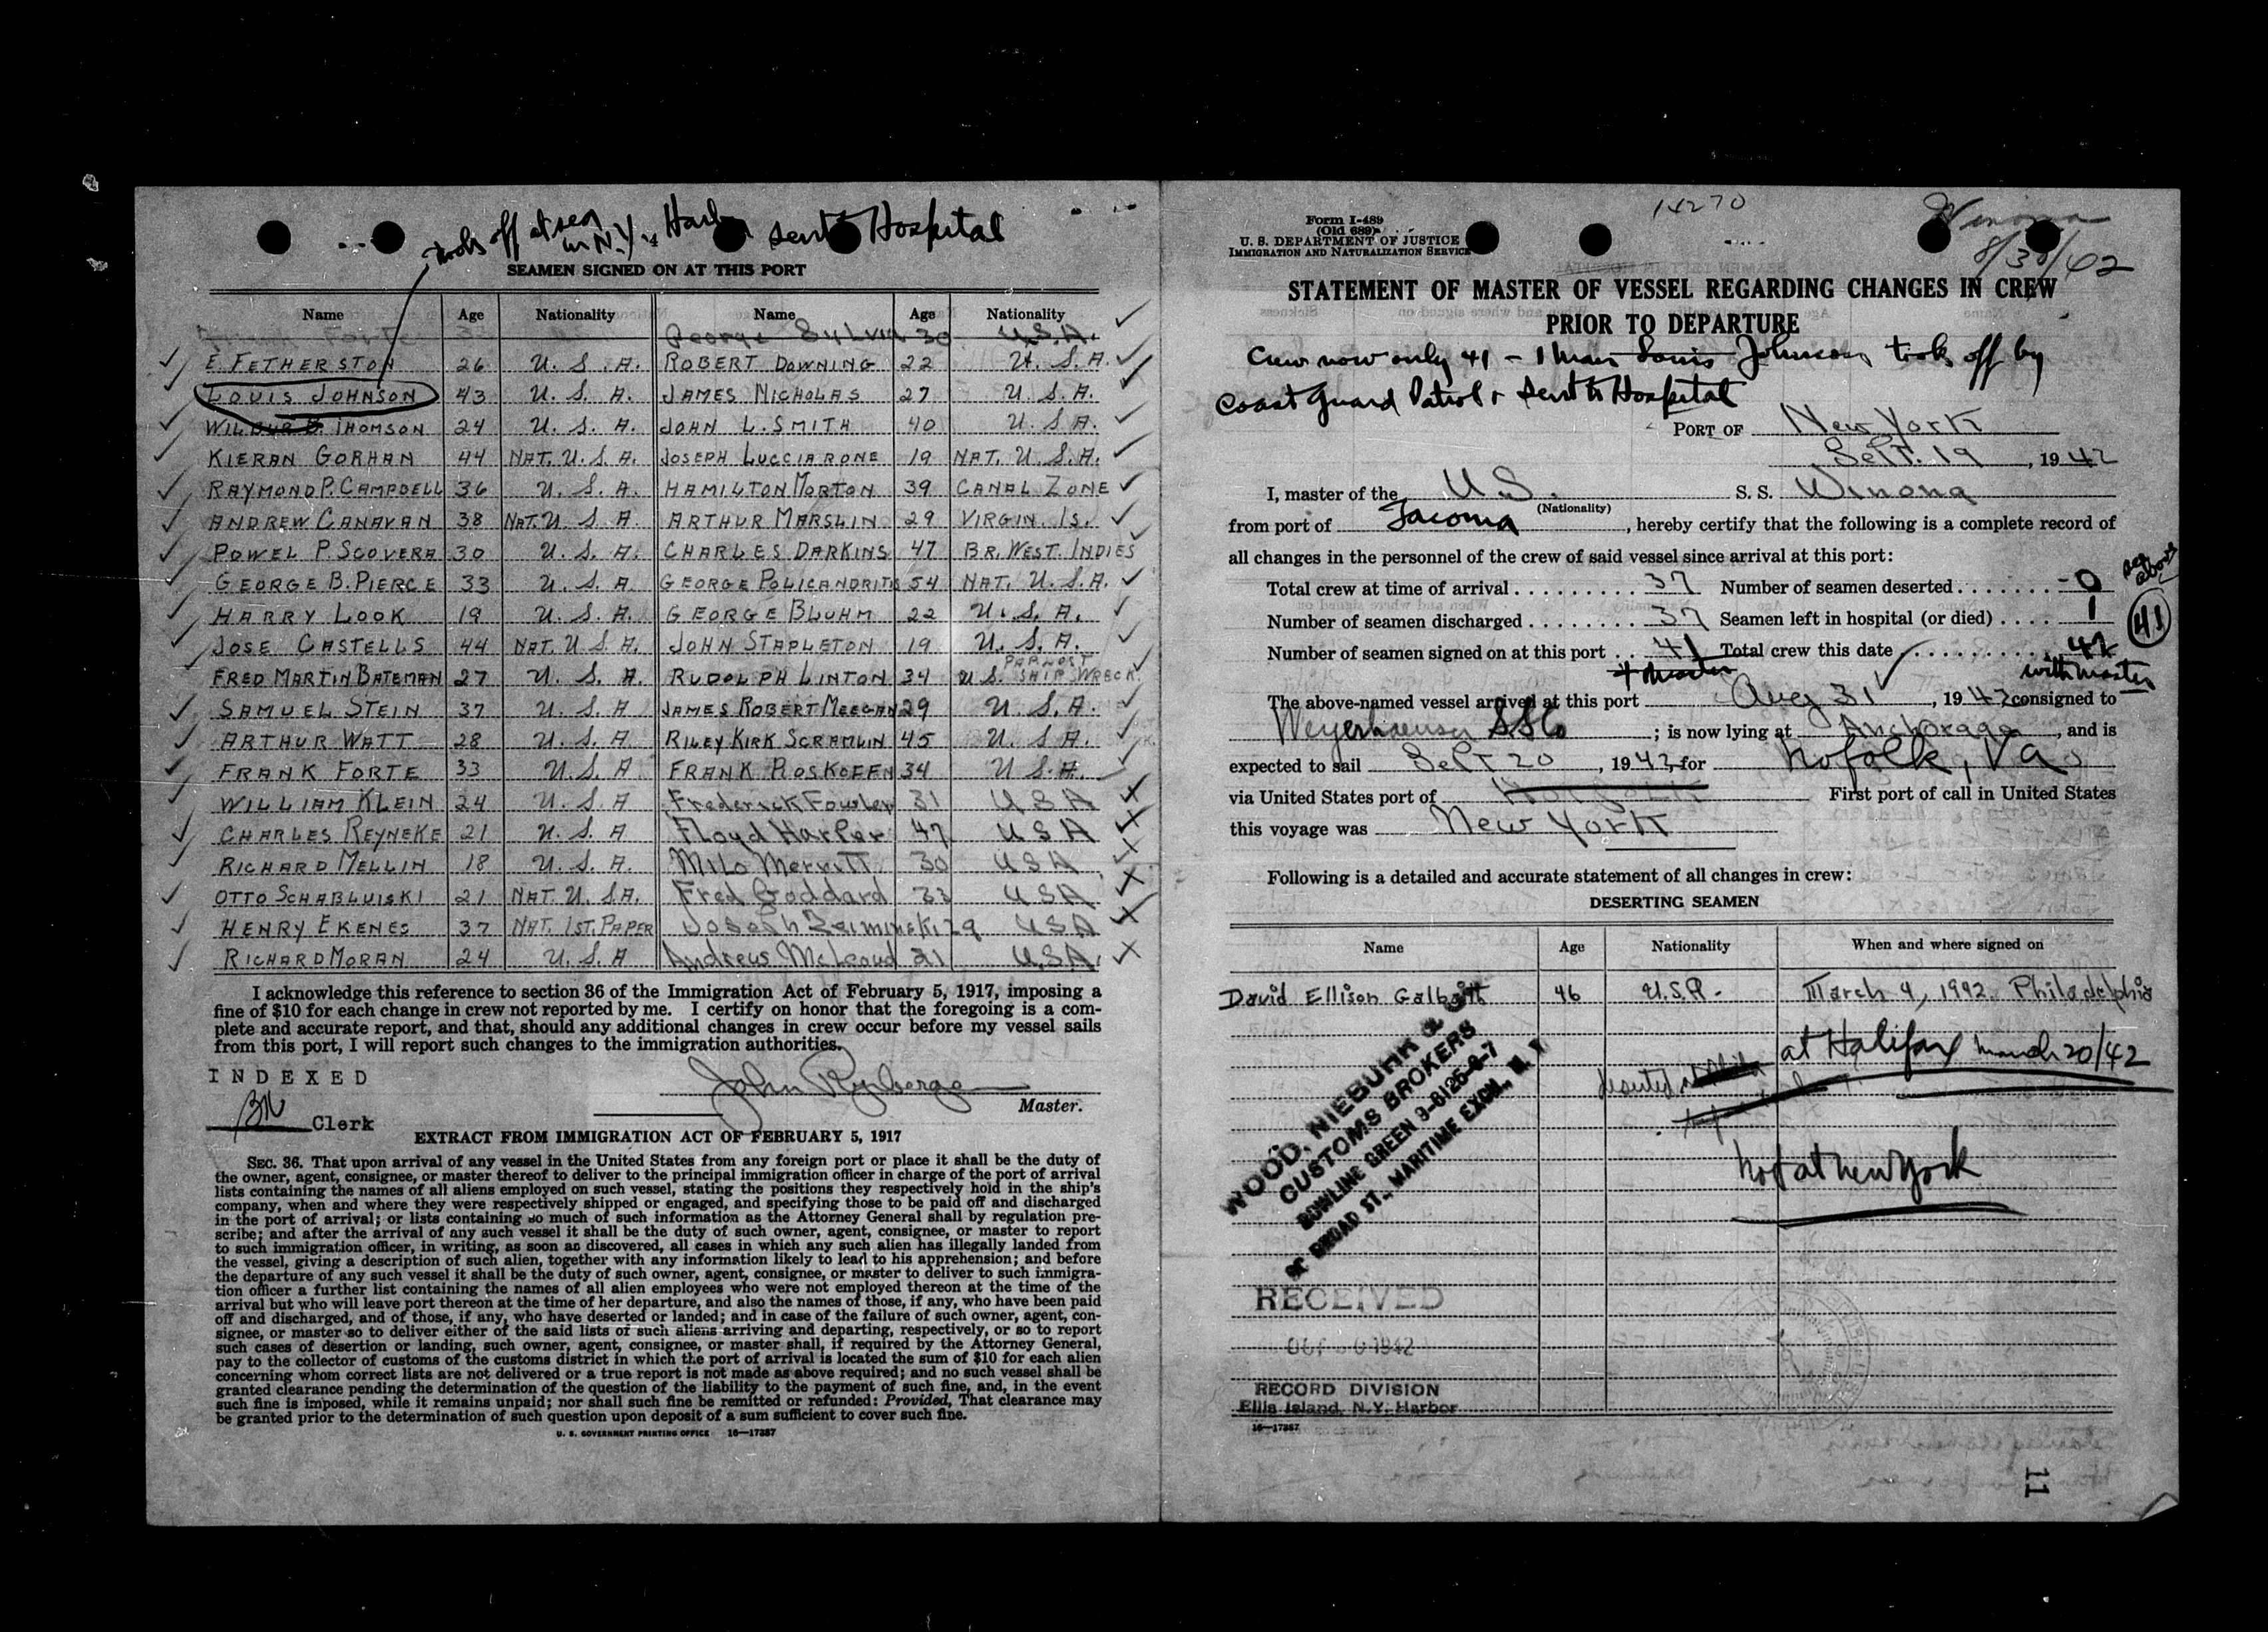 took off at sea in N.Y. Harbor sent to Hospital
SEAMEN SIGNED ON AT THIS PORT
Name Age Nationality Name Age Nationality
Forte 33 George Sylvia 30 U.S.A.
E. FETHERSTON 26 U. S. A. ROBERT DOWNING 22 U. S. A.
LOUIS JOHNSON 43 U. S. A. JAMES NICHOLAS 27 U S.A.
THOMSON 24 U. S. A. JOHN L. SMITH 40 U. S A.
KIERAN GORHAN 44 NAT. U. S. A. JOSEPH LUCCIARONE 19 NAT. U. S.A.
RAYMOND P. CAMPDELL 36 U. S. A. HAMILTON MORTON 39 CANAL ZONE
ANDREW CANAVAN 38 NAT. U S A ARTHUR MARSLIN 29 VIRGIN IS.
POWEL P. SCOVERA 30 U. S. A. CHARLES DARKINS 47 BR. WEST. INDIES
GEORGE B. PIERCE 33 U. S. A GEORGE POLICANDRITIS 54 NAT. U. S.A.
HARRY LOOK 19 U. S. A. GEORGE BLUHM 22 U. S. A.
JOSE CASTELLS 44 NAT. U. S A. JOHN STAPLETON 19 U. S. A.
FRED MARTIN BATEMAN 27 U. S. A. RUDOLPH LINTON 34 U S. SHIP WRECK
SAMUEL STEIN 37 U. S. A JAMES ROBERT MEEGAN 29 U. S. A.
ARTHUR WATT 28 U. S. A RILEY KIRK SCRAMLIN 45 U. S A.
FRANK FORTE 33 U. S. A FRANK ROSKOFFN 34 U S.A.
WILLIAM KLEIN 24 U. S. A Frederick Fowler 31 U S A
CHARLES REYNEKE 21 U. S. A Floyd Harper 47 U S A
RICHARD MELLIN 18 U. S. A Milo Merritt 30 U S A
OTTO SCHABLUISKI 21 NAT. U. S.A. Fred Goddard 33 U S A
HENRY EKENES 37 NAT. 1ST. PAPER Joseph 29 U S A
RICHARD MORAN 24 U. S. A Andrew McLeoud 31 U.S.A.
I acknowledge this reference to section 36 of the Immigration Act of February 5, 1917, imposing a
fine of $10 for each change in crew not reported by me. I certify on honor that the foregoing is a com-
plete and accurate report, and that, should any additional changes in crew occur before my vessel sails
from this port, I will report such changes to the immigration authorities.
INDEXED
Clerk
John Ryberge
Master.
EXTRACT FROM IMMIGRATION ACT OF FEBRUARY 5, 1917
SEC. 36. That upon arrival of any vessel in the United States from any foreign port or place it shall be the duty of
the owner, agent, consignee, or master thereof to deliver to the principal immigration officer in charge of the port of arrival
lists containing the names of all aliens employed on such vessel, stating the positions they respectively hold in the ship's
company, when and where they were respectively shipped or engaged, and specifying those to be paid off and discharged
in the port of arrival; or lists containing so much of such information as the Attorney General shall by regulation pre-
scribe; and after the arrival of any such vessel it shall be the duty of such owner, agent, consignee, or master to report
to such immigration officer, in writing, as soon as discovered, all cases in which any such alien has illegally landed from
the vessel, giving a description of such alien, together with any information likely to lead to his apprehension; and before
the departure of any such vessel it shall be the duty of such owner, agent, consignee, or master to deliver to such immigra-
tion officer a further list containing the names of all alien employees who were not employed thereon at the time of the
arrival but who will leave port thereon at the time of her departure, and also the names of those, if any, who have been paid
off and discharged, and of those, if any, who have deserted or landed; and in case of the failure of such owner, agent, con-
signee, or master so to deliver either of the said lists of such aliens arriving and departing, respectively, or so to report
such cases of desertion or landing, such owner, agent, consignee, or master shall, if required by the Attorney General,
pay to the collector of customs of the customs district in which the port of arrival is located the sum of $10 for each alien
concerning whom correct lists are not delivered or a true report is not made as above required; and no such vessel shall be
granted clearance pending the determination of the question of the liability to the payment of such fine, and, in the event
such fine is imposed, while it remains unpaid; nor shall such fine be remitted or refunded: Provided, That clearance may
be granted prior to the determination of such question upon deposit of a sum sufficient to cover such fine.
U. S. GOVERNMENT PRINTING OFFICE 16—17387
14270
Winona
8/30/42
Form I-489
(Old 689)
U. S. DEPARTMENT OF JUSTICE
IMMIGRATION AND NATURALIZATION SERVICE
STATEMENT OF MASTER OF VESSEL REGARDING CHANGES IN CREW
PRIOR TO DEPARTURE
Crew now only 41 - 1 man Louis Johnson took off by
Coast Guard Patrol & sent to Hospital
PORT OF New York
Sept. 19, 1942
I, master of the U.S. S. S. Winona
(Nationality)
from port of Tacoma, hereby certify that the following is a complete record of
all changes in the personnel of the crew of said vessel since arrival at this port:
Total crew at time of arrival 37 Number of seamen deserted 0
see above
Number of seamen discharged 37 Seamen left in hospital (or died) 1
41
Number of seamen signed on at this port 41 Total crew this date 42
+ Master with master
The above-named vessel arrived at this port Aug 31, 1942 consigned to
Weyerhaeuser SS Co; is now lying at Anchorage, and is
expected to sail Sept 20, 1942, for Nofolk, Va
via United States port of First port of call in United States
this voyage was New York
Following is a detailed and accurate statement of all changes in crew:
DESERTING SEAMEN
Name Age Nationality When and where signed on
David Ellison Galbraith 46 U.S.A. March 9, 1942 Philadelphia
at Halifax March 20/42
not at New York
WOOD, NIEBUHR & CO
CUSTOMS BROKERS
BOWLING GREEN 9-6125-6-7
BROAD ST., MARITIME EXCH., N. Y
RECEIVED
1942
RECORD DIVISION
Ellis Island, N.Y. Harbor
16—17387
11